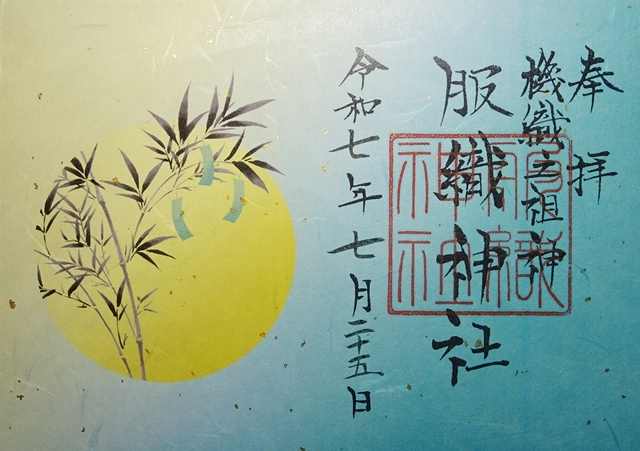 奉拝
機織之祖神
服織神社
令和七年七月二十五日